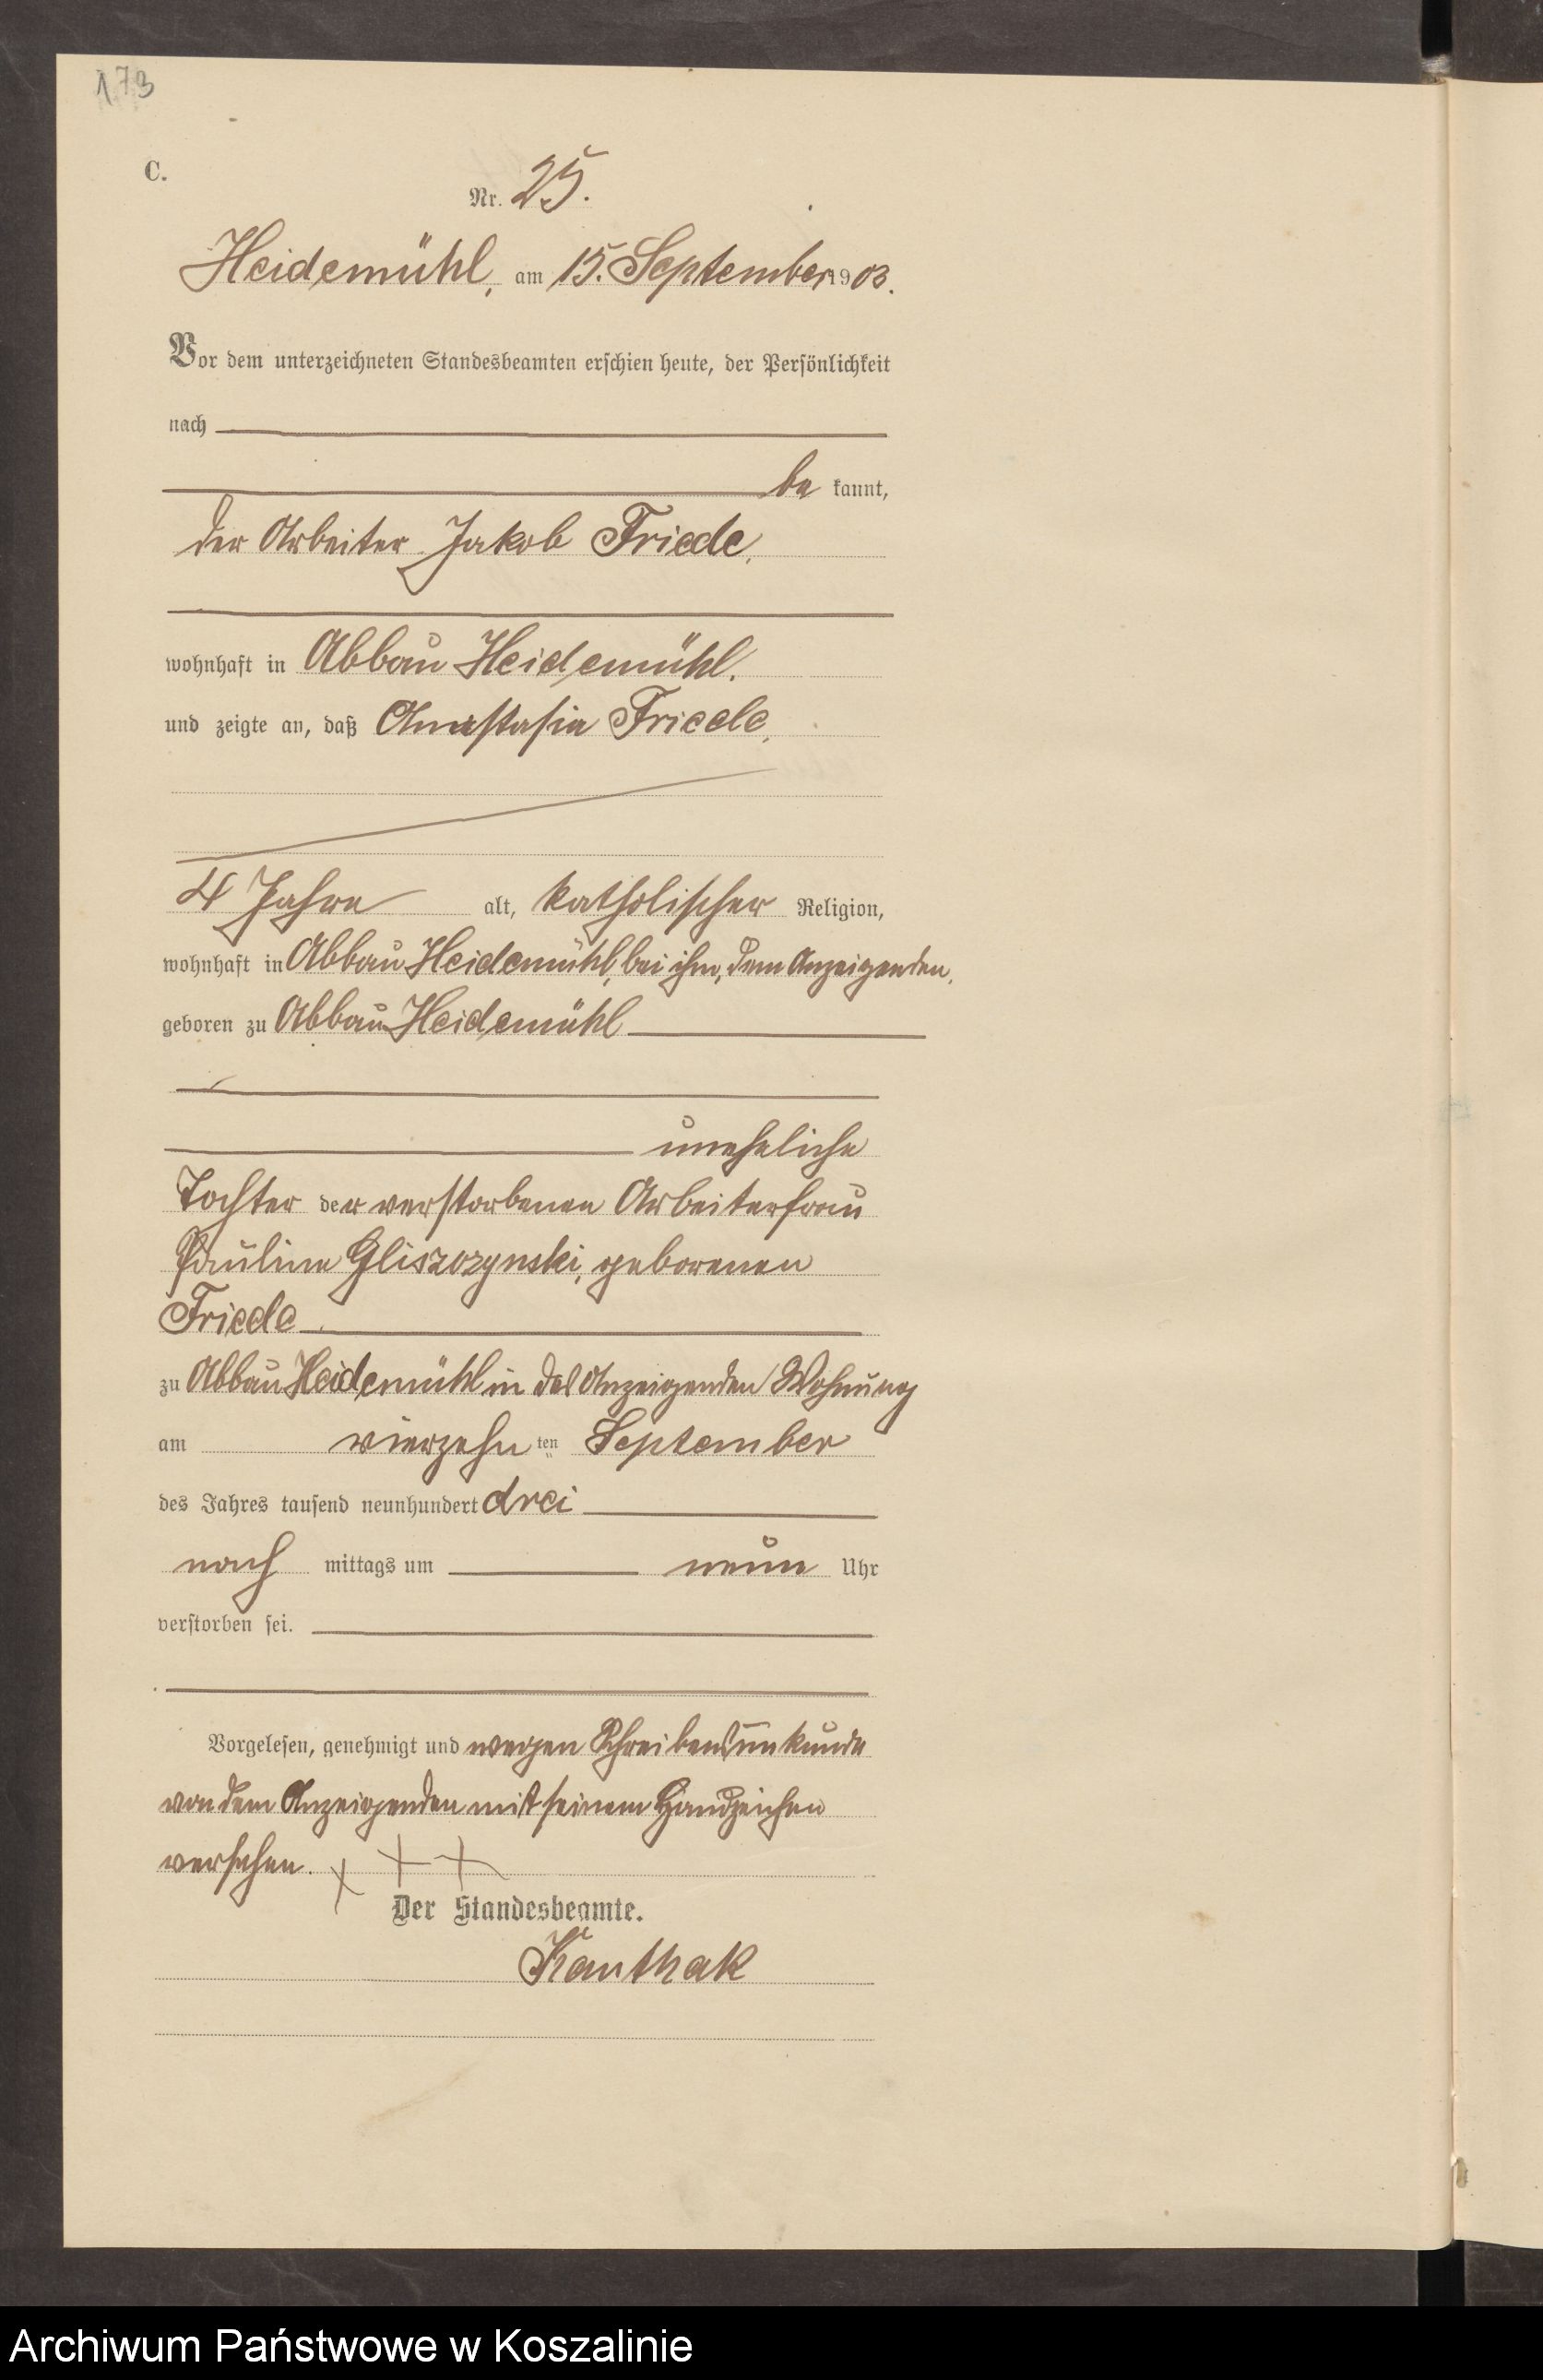 173
C.
Nr. 25.
Heidemühl, am 15. September 1903.
Vor dem unterzeichneten Standesbeamten erschien heute, der Persönlichkeit
nach
be kannt,
der Arbeiter Jakob Friede,
wohnhaft in Abbau Heidemühl.
und zeigte an, daß Anastasia Friede,
4 Jahre alt, katholischer Religion,
wohnhaft in Abbau Heidemühl, bei ihm, dem Anzeigenden,
geboren zu Abbau Heidemühl
uneheliche
Tochter der verstorbenen Arbeiterfrau
Pauline Gliszczynski, geborenen
Friede
zu Abbau Heidemühl in des Anzeigenden Wohnung
am vierzehn ten September
des Jahres tausend neunhundert drei
nach mittags um neun Uhr
verstorben sei.
Vorgelesen, genehmigt und wegen Schreibensunkunde
von dem Anzeigenden mit seinem Handzeichen
versehen. x x x
Der Standesbeamte.
Kanthak
Archiwum Państwowe w Koszalinie